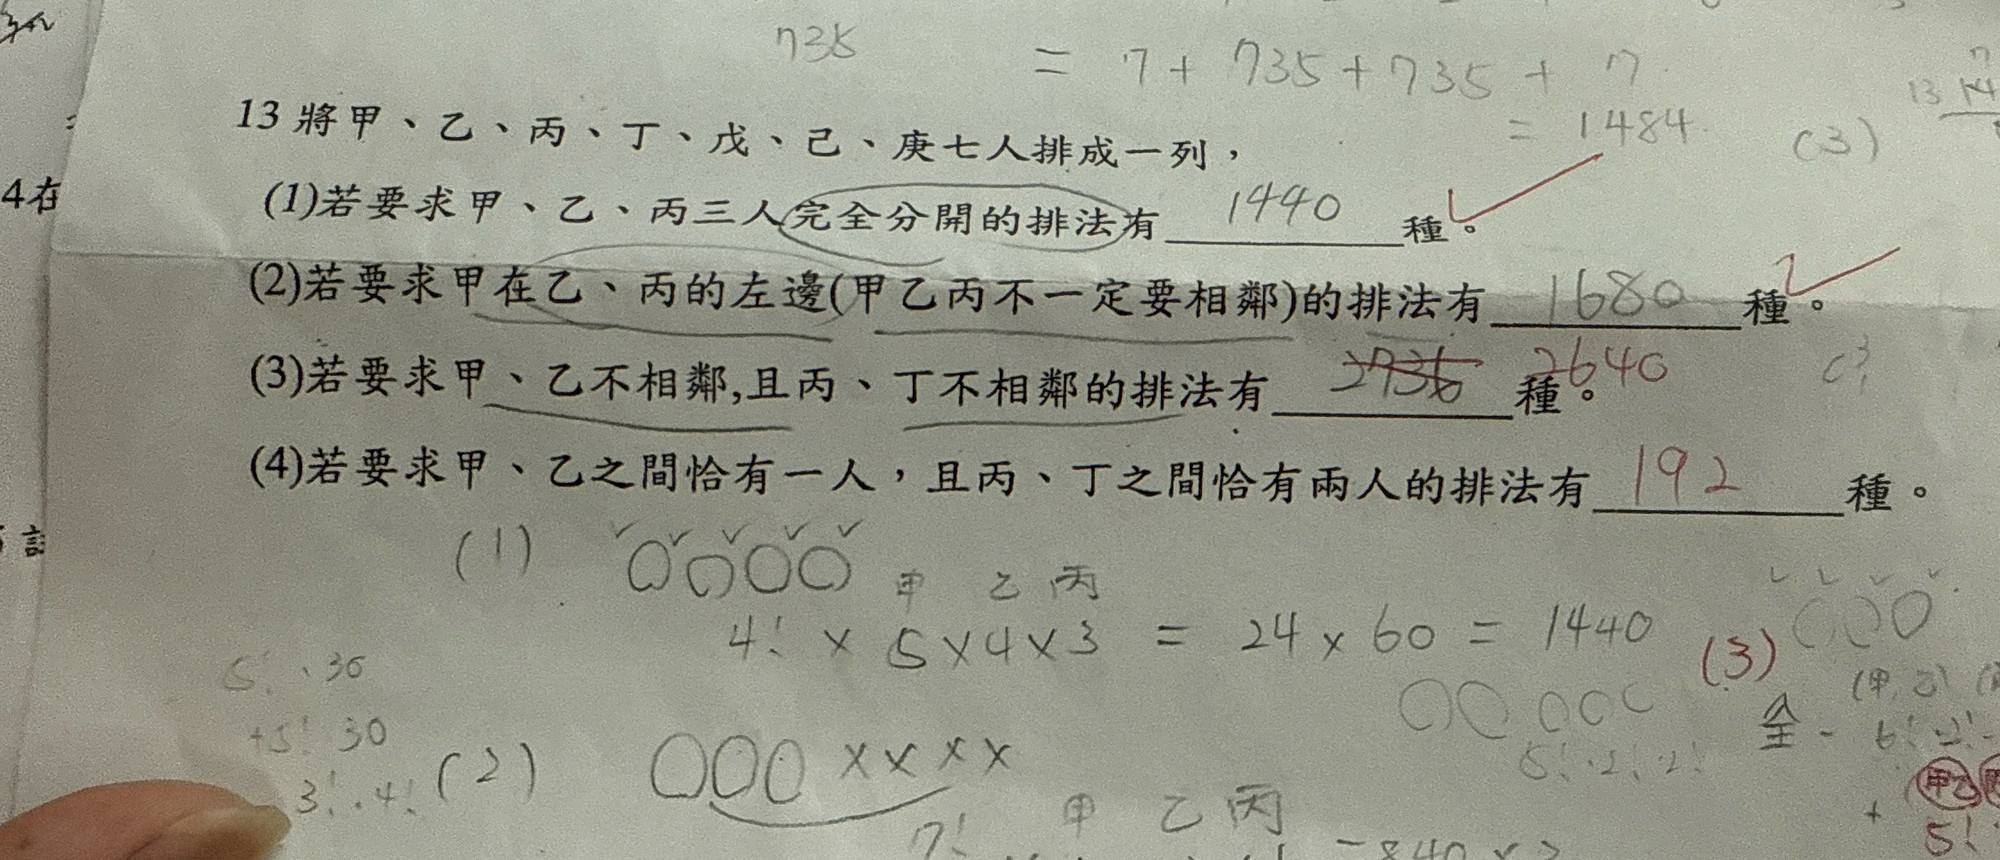 735 = 7 + 735 + 735 + 7
= 1484
(3)
13 將甲、乙、丙、丁、戊、己、庚七人排成一列，
(1)若要求甲、乙、丙三人完全分開的排法有 1440 種。
4在
(2)若要求甲在乙、丙的左邊(甲乙丙不一定要相鄰)的排法有 1680 種。
(3)若要求甲、乙不相鄰,且丙、丁不相鄰的排法有 2736 種。 2640
(4)若要求甲、乙之間恰有一人，且丙、丁之間恰有兩人的排法有 192 種。
(1)
甲 乙 丙
4! × 5×4×3 = 24 × 60 = 1440
(3)
5! · 30
+5! 30
3! · 4!
5! · 2! · 2!
全 - 6! · 2! -
(甲, 乙)
(2) ××××
甲乙
+ 5!
甲 乙 丙
7!
= 840 ×2